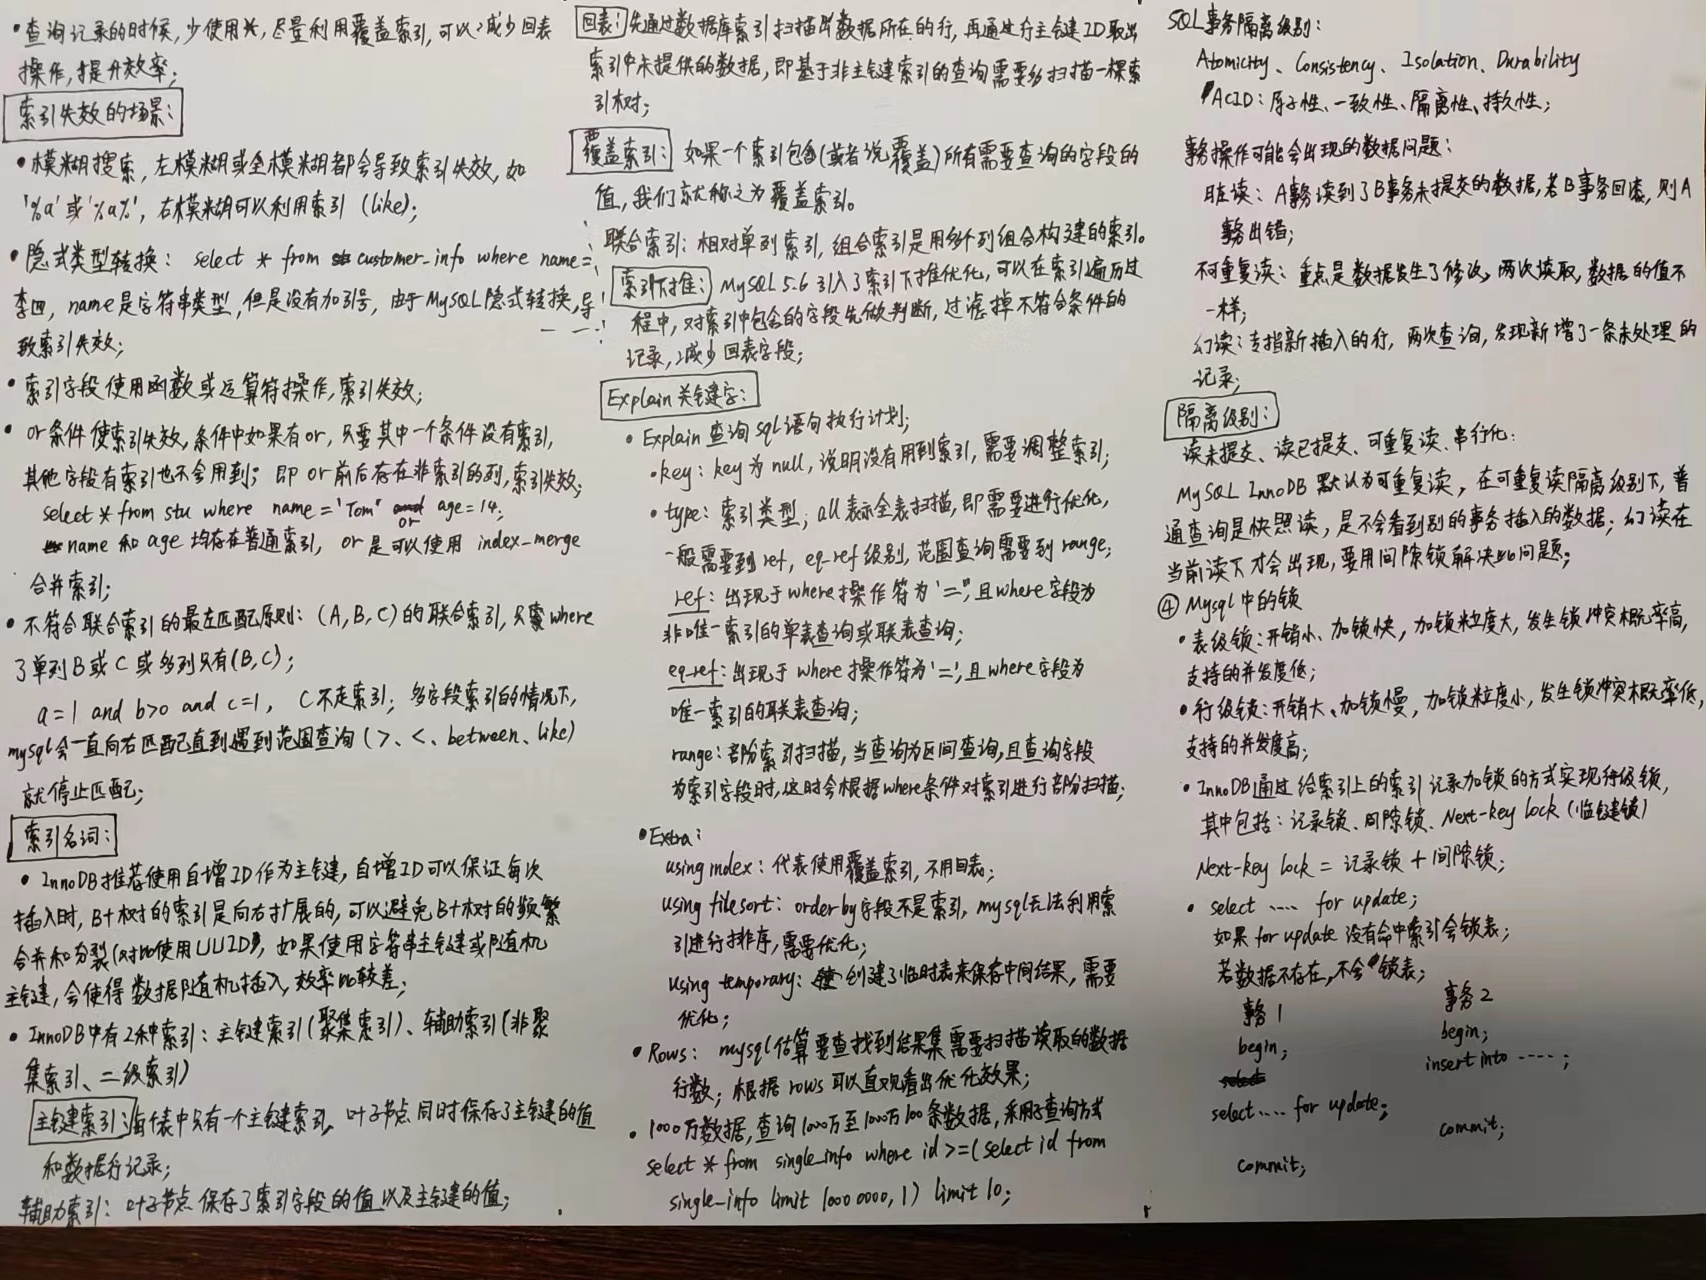 • 查询记录的时候,少使用*,尽量利用覆盖索引,可以减少回表
操作,提升效率;
索引失效的场景:
• 模糊搜索,左模糊或全模糊都会导致索引失效,如
'%a'或'%a%',右模糊可以利用索引(like);
• 隐式类型转换: select * from customer_info where name=
李四,name是字符串类型,但是没有加引号,由于MySQL隐式转换,导
致索引失效;
• 索引字段使用函数或运算符操作,索引失效;
• or条件使索引失效,条件中如果有or,只要其中一个条件没有索引,
其他字段有索引也不会用到;即or前后存在非索引的列,索引失效;
select * from stu where name='Tom' or age=14;
name 和 age 均存在普通索引, or是可以使用 index_merge
合并索引;
• 不符合联合索引的最左匹配原则:(A,B,C)的联合索引,只索where
了单列B或C或多列只有(B,C);
a=1 and b>0 and c=1, C不走索引;多字段索引的情况下,
mysql会一直向右匹配直到遇到范围查询(>、<、between、like)
就停止匹配;
索引名词:
• InnoDB推荐使用自增ID作为主键,自增ID可以保证每次
插入时,B+树的索引是向右扩展的,可以避免B+树的频繁
合并和分裂(对比使用UUID),如果使用字符串主键或随机
主键,会使得数据随机插入,效率比较差;
• InnoDB中有2种索引:主键索引(聚集索引)、辅助索引(非聚
集索引、二级索引)
主键索引:每个表中只有一个主键索引,叶子节点同时保存了主键的值
和数据行记录;
辅助索引:叶子节点保存了索引字段的值以及主键的值;
回表:先通过数据库索引扫描出数据所在的行,再通过行主键ID取出
索引中未提供的数据,即基于非主键索引的查询需要多扫描一棵索
引树;
覆盖索引:如果一个索引包含(或者说覆盖)所有需要查询的字段的
值,我们就称之为覆盖索引。
联合索引:相对单列索引,组合索引是用多个列组合构建的索引。
索引下推:MySQL 5.6引入了索引下推优化,可以在索引遍历过
程中,对索引中包含的字段先做判断,过滤掉不符合条件的
记录,减少回表字段;
Explain关键字:
• Explain 查询sql语句执行计划;
• key: key为null,说明没有用到索引,需要调整索引;
• type:索引类型;all表示全表扫描,即需要进行优化,
一般需要到ref,eq_ref级别,范围查询需要到range;
ref:出现于where操作符为'=',且where字段为
非唯一索引的单表查询或联表查询;
eq_ref:出现于where操作符为'=',且where字段为
唯一索引的联表查询;
range:部份索引扫描,当查询为区间查询,且查询字段
为索引字段时,这时会根据where条件对索引进行部份扫描;
• Extra:
using index:代表使用覆盖索引,不用回表;
using filesort: order by字段不是索引,mysql无法利用索
引进行排序,需要优化;
using temporary:创建了临时表来保存中间结果,需要
优化;
• Rows: mysql估算要查找到结果集需要扫描读取的数据
行数,根据rows可以直观看出优化效果;
• 1000万数据,查询1000万至1000万100条数据,采用子查询方式
select * from single_info where id>=(select id from
single_info limit 10000000,1) limit 10;
SQL事务隔离级别:
Atomicity、Consistency、Isolation、Durability
ACID:原子性、一致性、隔离性、持久性;
事务操作可能会出现的数据问题:
脏读:A事务读到了B事务未提交的数据,若B事务回滚,则A
事务出错;
不可重复读:重点是数据发生了修改,两次读取,数据的值不
一样;
幻读:专指新插入的行,两次查询,发现新增了一条未处理的
记录;
隔离级别:
读未提交、读已提交、可重复读、串行化;
MySQL InnoDB默认为可重复读,在可重复读隔离级别下,普
通查询是快照读,是不会看到别的事务插入的数据;幻读在
当前读下才会出现,要用间隙锁解决此问题;
④ Mysql中的锁
• 表级锁:开销小、加锁快,加锁粒度大,发生锁冲突概率高,
支持的并发度低;
• 行级锁:开销大、加锁慢,加锁粒度小,发生锁冲突概率低,
支持的并发度高;
• InnoDB通过给索引上的索引记录加锁的方式实现行级锁,
其中包括:记录锁、间隙锁、Next-key lock(临键锁)
Next-key lock = 记录锁 + 间隙锁;
• select .... for update;
如果for update没有命中索引会锁表;
若数据不存在,不会锁表;
事务1 事务2
begin; begin;
insert into ....;
select .... for update;
commit;
commit;